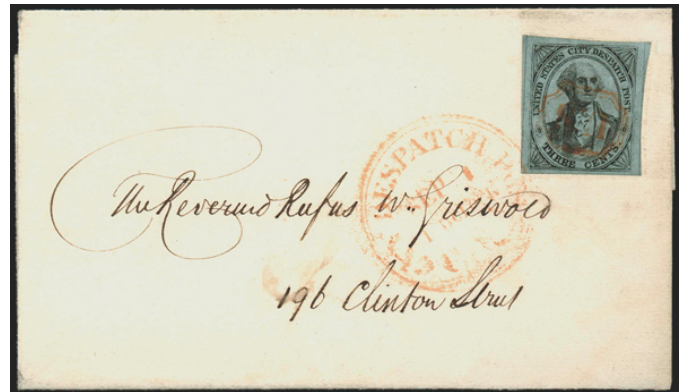 UNITED STATES CITY DESPATCH POST
THREE CENTS.
DESPATCH
The Reverend Rufus W. Griswold
196 Clinton Street